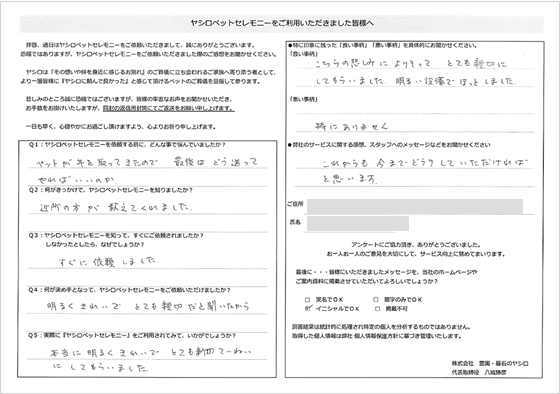 ヤシロペットセレモニーをご利用いただきました皆様へ
拝啓、過日はヤシロペットセレモニーをご依頼いただきまして、誠にありがとうございます。
恐縮ではありますが、ヤシロペットセレモニーをご依頼いただきました際のご感想をお聞かせください。
ヤシロは『その想いや絆を身近に感じるお別れ』のご葬儀に立ち会われるご家族へ寄り添う者として、
より一層皆様に『ヤシロに頼んで良かった』と感じて頂けるペットのご葬儀を目指して参ります。
悲しみのところ誠に恐縮ではございますが、皆様の率直なお声をお聞かせいただき、
お手数をお掛けいたしますが、同封の返信用封筒にてご返送をお願い申し上げます。
一日も早く、心穏やかにお過ごし頂けますよう、心よりお祈り申し上げます。
Q1:ヤシロペットセレモニーを依頼する前に、どんな事で悩んでいましたか?
ペットが年を取ってきたので 最後は どう送って
やればいいのか
Q2:何がきっかけで、ヤシロペットセレモニーを知りましたか?
近所の方が 教えてくれました。
Q3:ヤシロペットセレモニーを知って、すぐにご依頼されましたか?
しなかったとしたら、なぜでしょうか?
すぐに 依頼 しました。
Q4:何が決め手となって、ヤシロペットセレモニーをご依頼いただけましたか?
明るく きれいで とても親切 だと聞いたから
Q5:実際に『ヤシロペットセレモニー』をご利用されてみて、いかがでしょうか?
本当に 明るく きれいで とても ていねい
に してもらいました。
●特に印象に残った「良い事柄」「悪い事柄」を具体的にお聞かせください。
「良い事柄」
こちらの悲しみに よりそって とても 親切に
してもらいました。 明るい設備で ほっと しました。
「悪い事柄」
特にありません
●弊社のサービスに関する感想、スタッフへのメッセージなどをお聞かせください
これからも 今までどうり していただければ
と思います。
ご住所
氏名
アンケートにご協力頂き、ありがとうございました。
お一人お一人のご意見を大切にして、サービス向上に努めてまいります。
最後に・・・皆様にいただきましたメッセージを、当社のホームページや
ご案内資料に掲載させていただいてよろしいでしょうか?
□ 実名でOK □ 苗字のみでOK
☑ イニシャルでOK □ 掲載不可
回答結果は統計的に処理され特定の個人を分析するものではありません。
取得した個人情報は弊社 個人情報保護方針に基づき管理いたします。
株式会社 霊園・墓石のヤシロ
代表取締役 八城勝彦